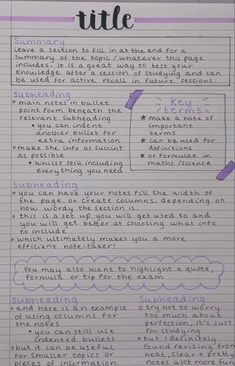 title
Summary
leave a section to fill in at the end for a
summary of the topic / whatever this page
includes. It is a great way to test your
knowledge after a session of studying and can
be used for active recall in future sessions.
Subheading
main notes in bullet
point form beneath the
relevant subheading
you can indent
another bullet for
extra information
make the info as succint
as possible
whilst still including
everything you need
Key
terms
make a note of
important
terms
Can be used for
definitions
or formulae in
maths/science
Subheading
you can have your notes fill the width of
the page, or create columns, depending on
how wordy the section is.
this is a set up you will get used to and
you will get better at choosing what info
to include
which ultimately makes you a more
efficient note-taker!
You may also want to highlight a quote,
formula or tip for the exam.
Subheading
and here is an example
of using columns for
the notes
you can still use
indented bullets
but it can be useful
for smaller topics or
pieces of information
Subheading
try not to worry
too much about
perfection, it's just
for studying
but I definitely
found revising from
neat, clear + pretty
notes a lot more fun!